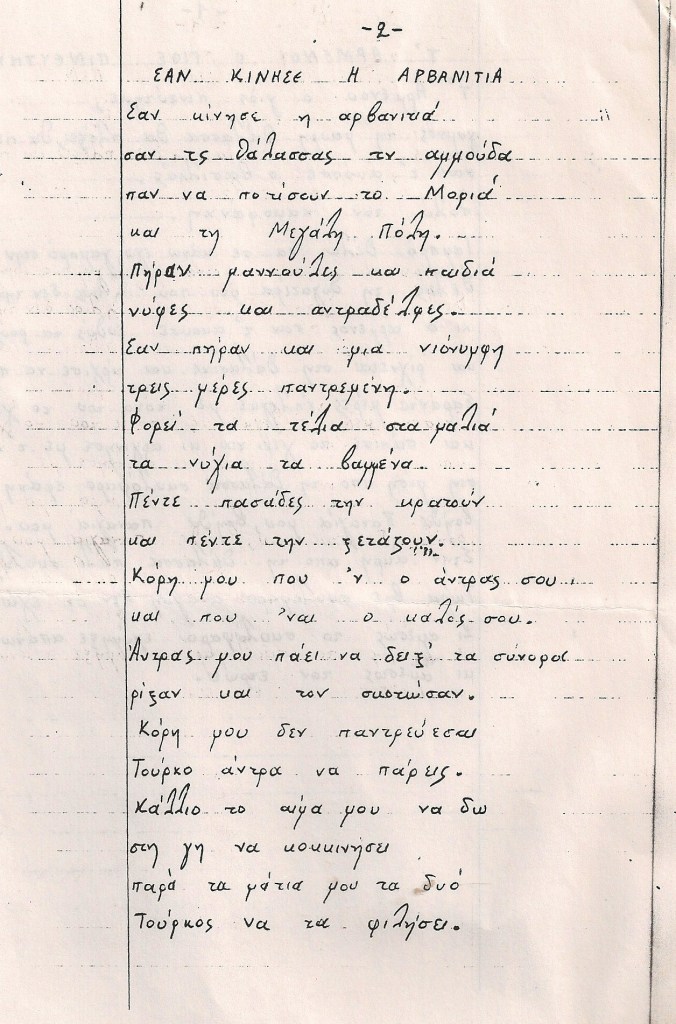 -2-
ΣΑΝ ΚΙΝΗΣΕ Η ΑΡΒΑΝΙΤΙΑ
Σαν κίνησε η αρβανιτιά
σαν τς θάλασσας τν αμμούδα
παν να πατίσουν το Μοριά
και τη Μεγάλη Πόλη.
Πήραν μαννούλες και παιδιά
νύφες και αντραδέλφες.
Σαν πήραν και μια νιόνυμφη
τρεις μέρες παντρεμένη.
Φορεί τα τέλια στα μαλιά
τα νύχια τα βαμμένα.
Πέντε πασάδες την κρατούν
και πέντε την ξετάζουν.
Κόρη μου που 'ν ο άντρας σου
και που 'ναι ο καλός σου.
Άντρας μου πάει να δειξ' τα σύνορα
ρίξαν και τον σκοτώσαν.
Κόρη μου δεν παντρεύεσαι
Τούρκο άντρα να πάρεις.
Κάλλιο το αίμα μου να δω
στη γη να κοκκινήσει
παρά τα μάτια μου τα δυό
Τούρκος να τα φιλήσει.